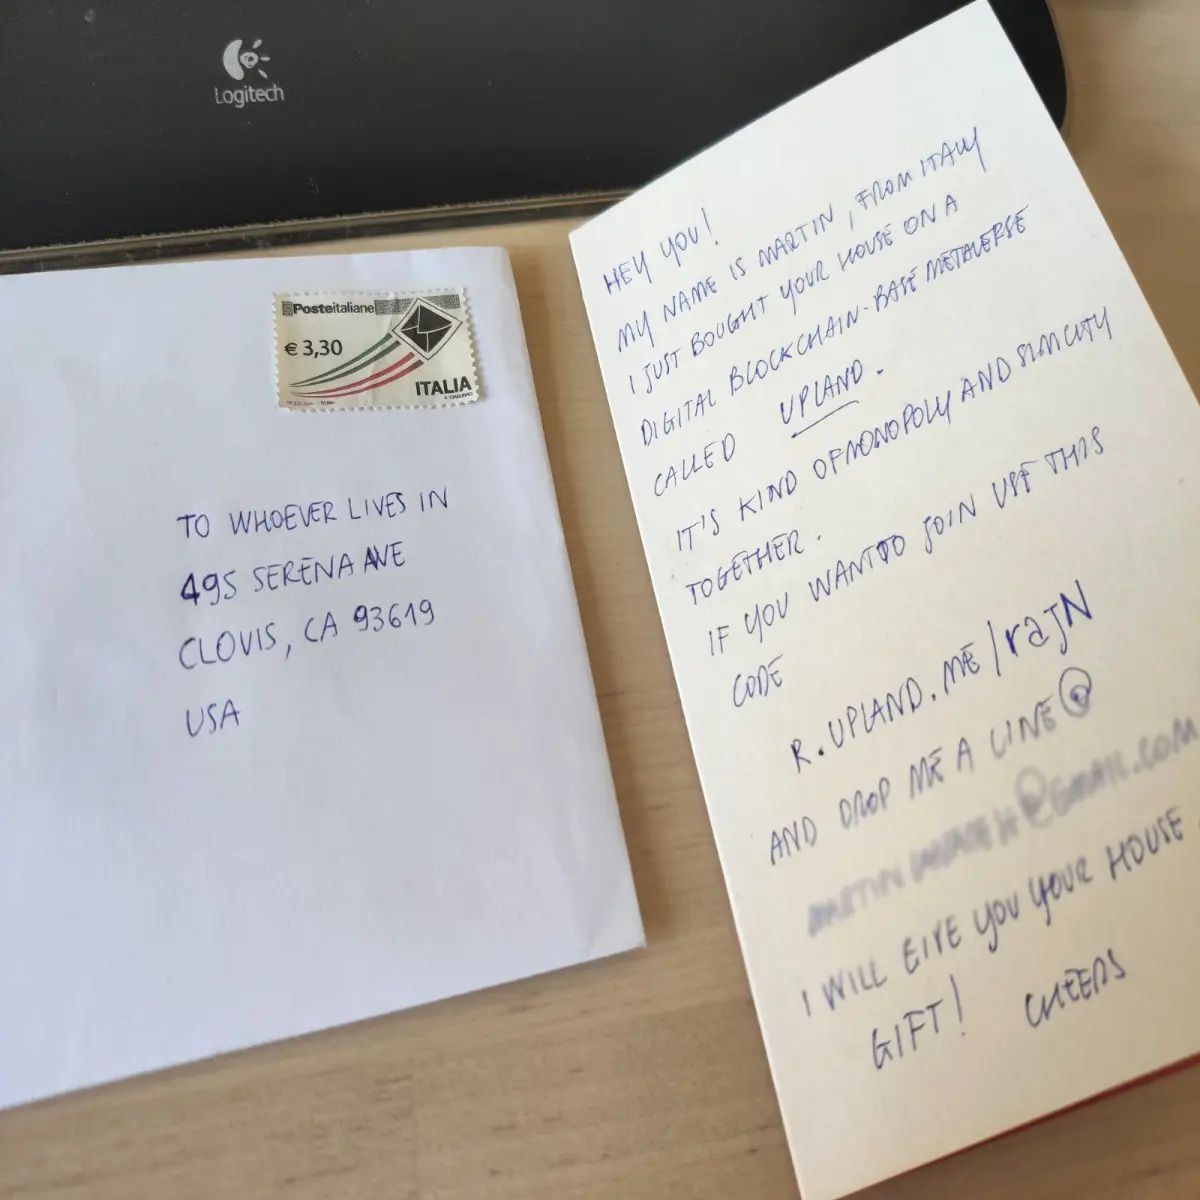 Logitech
Posteitaliane
€ 3,30
ITALIA
TO WHOEVER LIVES IN
495 SERENA AVE
CLOVIS, CA 93619
USA
HEY YOU!
MY NAME IS MARTIN, FROM ITALY
I JUST BOUGHT YOUR HOUSE ON A
DIGITAL BLOCKCHAIN-BASE METAVERSE
CALLED UPLAND.
IT'S KIND OF MONOPOLY AND SIM CITY
TOGETHER.
IF YOU WANT TO JOIN USE THIS
CODE
R.UPLAND.ME/rajN
AND DROP ME A LINE @
@GMAIL.COM
I WILL GIVE YOU YOUR HOUSE
GIFT! CHEERS